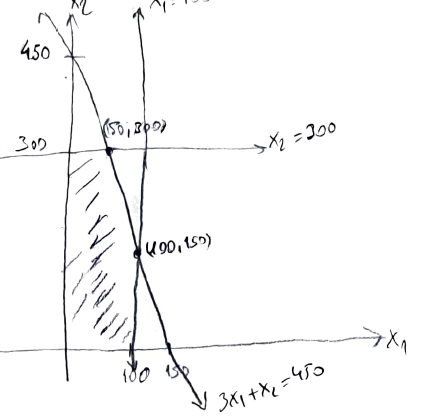 x2
450
(50,300)
300
x2 = 300
(100,150)
x1
100
150
3x1+x2=450